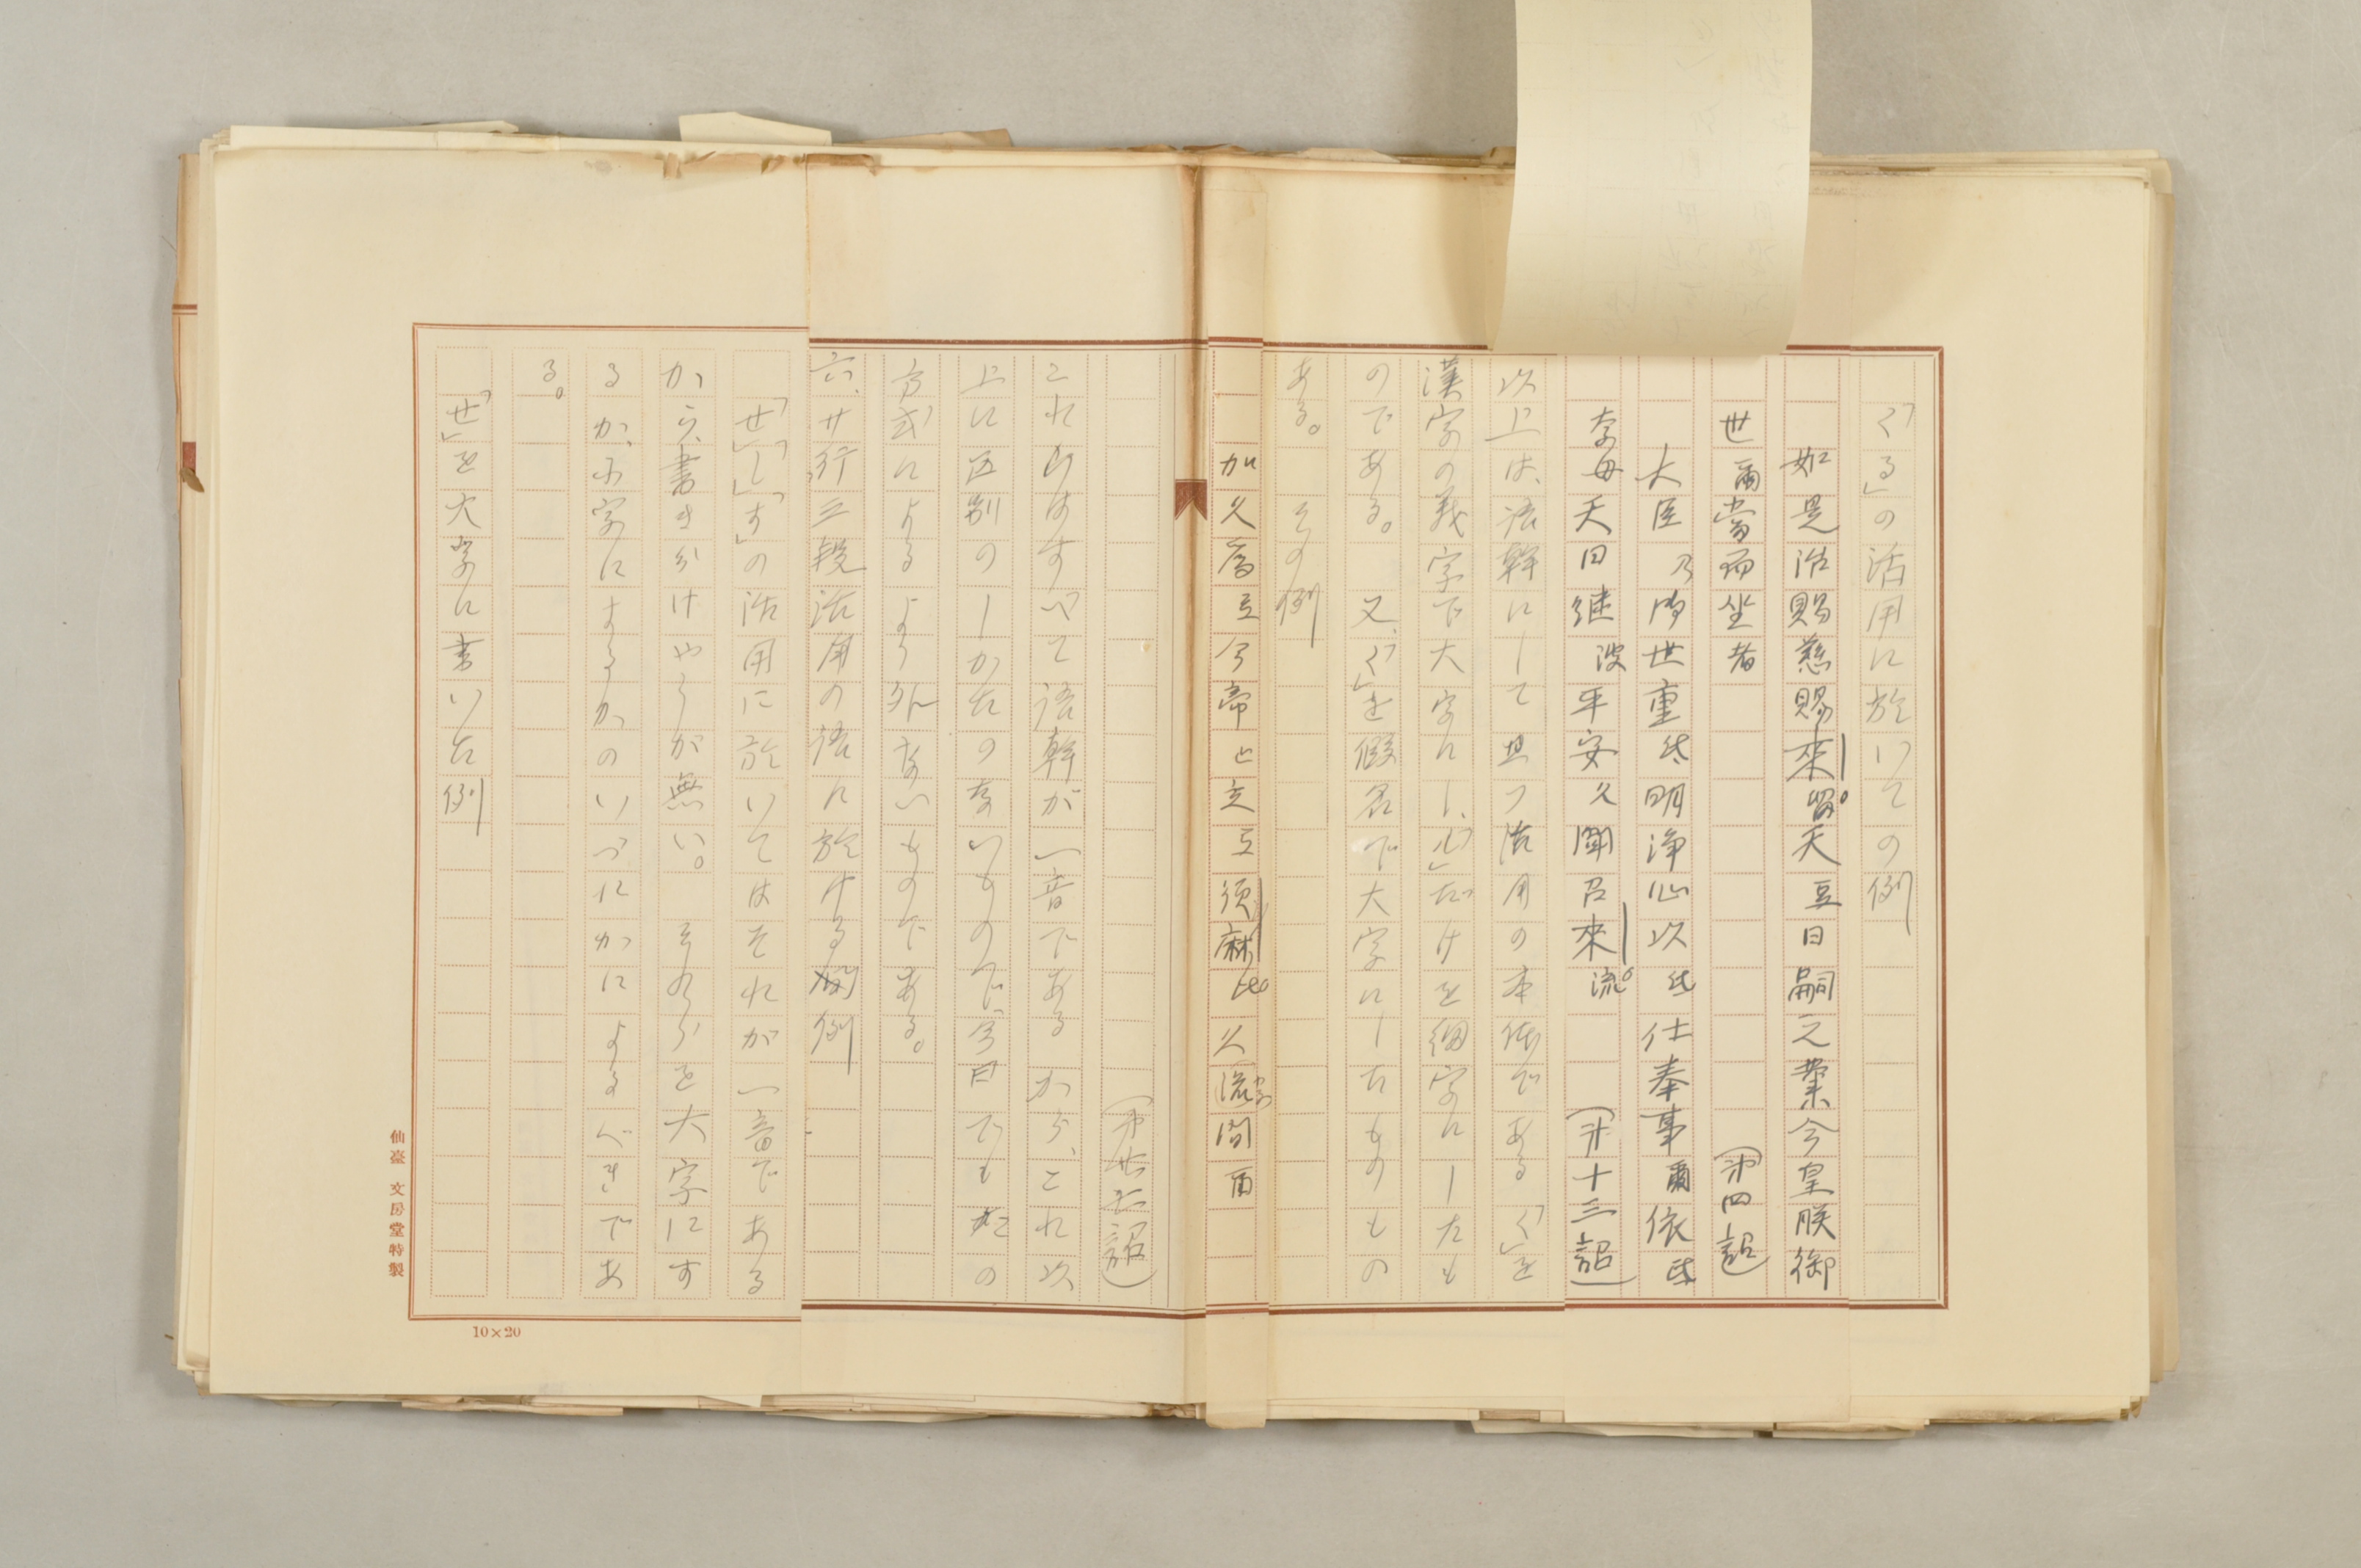 「くる」の活用に於いての例
如是治賜慈賜來留天豆日嗣之業今皇朕御
世爾當而坐者　（第四詔）
大臣乃御世重弖明淨心以弖仕奉事爾依弖
奈母天日継波平安久聞召來流　（第十三詔）
以上は、語幹にして且つ活用の本体である「く」を
漢字の義字で大字にし、「ル」だけを細字にしたも
のである。　又、「く」を假名で大字にしたものも
ある。　その例
加久爲
久流間爾
（第廿五詔）
これらはすべて語幹が一音である　から、これ以
上に区別のしかたのないもので、今日でもこの
方式によるより外ないものである。
六、サ行三段活用の語に於ける例
「せ」「し」「す」の活用に於いてはそれが一音である
から、書き分けやうが無い。　それらを大字にす
るか、小字にするかのいづれかによるべきであ
る。
「せ」を大字に書いた例
仙臺　文房堂特製
10×20